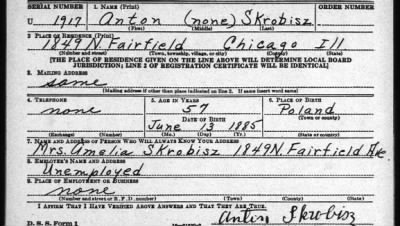 SERIAL NUMBER 1. NAME (Print) ORDER NUMBER
U 1917 Anton (none) Skrobisz
(First) (Middle) (Last)
2. PLACE OF RESIDENCE (Print)
1849 N. Fairfield Chicago Ill
(Number and street) (Town, township, village, or city) (County) (State)
[THE PLACE OF RESIDENCE GIVEN ON THE LINE ABOVE WILL DETERMINE LOCAL BOARD
JURISDICTION; LINE 2 OF REGISTRATION CERTIFICATE WILL BE IDENTICAL]
3. MAILING ADDRESS
same
(Mailing address if other than place indicated on line 2. If same insert word same)
4. TELEPHONE 5. AGE IN YEARS 6. PLACE OF BIRTH
none 57 Poland
DATE OF BIRTH (Town or county)
June 13 1885
(Exchange) (Number) (Mo.) (Day) (Yr.) (State or country)
7. NAME AND ADDRESS OF PERSON WHO WILL ALWAYS KNOW YOUR ADDRESS
Mrs. Amelia Skrobisz 1849 N. Fairfield Ave.
8. EMPLOYER'S NAME AND ADDRESS
Unemployed
9. PLACE OF EMPLOYMENT OR BUSINESS
none
(Number and street or R. F. D. number) (Town) (County) (State)
I AFFIRM THAT I HAVE VERIFIED ABOVE ANSWERS AND THAT THEY ARE TRUE.
D. S. S. Form 1 Anton Skrobisz